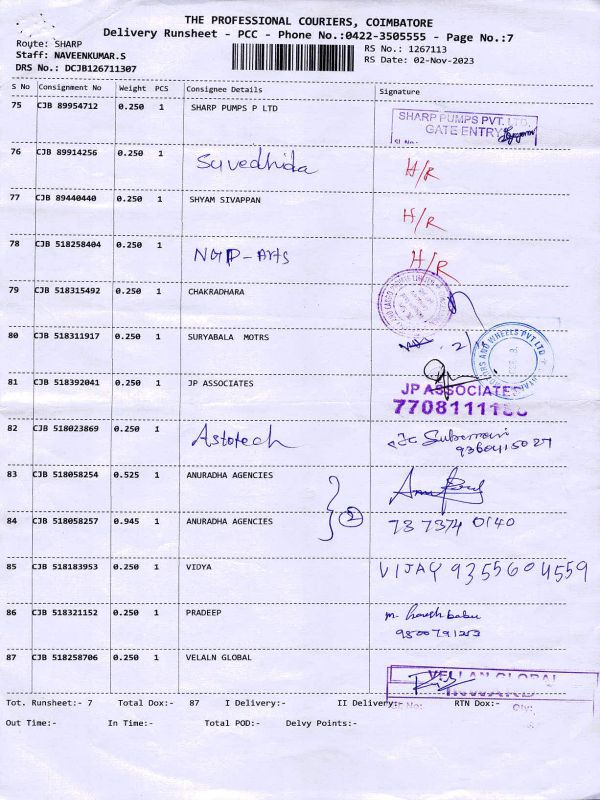 THE PROFESSIONAL COURIERS, COIMBATORE
Delivery Runsheet - PCC - Phone No.:0422-3505555 - Page No.:7
Route: SHARP RS No.: 1267113
Staff: NAVEENKUMAR.S RS Date: 02-Nov-2023
DRS No.: DCJB126711307
S No Consignment No Weight PCS Consignee Details Signature
75 CJB 89954712 0.250 1 SHARP PUMPS P LTD SHARP PUMPS PVT. LTD.
GATE ENTRY
Sl.No:
76 CJB 89914256 0.250 1 Suvedhida H/R
77 CJB 89440440 0.250 1 SHYAM SIVAPPAN H/R
78 CJB 518258404 0.250 1 NGP-Arts H/R
79 CJB 518315492 0.250 1 CHAKRADHARA
80 CJB 518311917 0.250 1 SURYABALA MOTRS
81 CJB 518392041 0.250 1 JP ASSOCIATES JP ASSOCIATES
82 CJB 518023869 0.250 1 Astotech
9360415027
83 CJB 518058254 0.525 1 ANURADHA AGENCIES
2
84 CJB 518058257 0.945 1 ANURADHA AGENCIES 737374 0140
85 CJB 518183953 0.250 1 VIDYA VIJAY 9355604559
86 CJB 518321152 0.250 1 PRADEEP m. hareshbabu
87 CJB 518258706 0.250 1 VELALN GLOBAL VELLAN GLOBAL
INWARD
Tot. Runsheet:- 7 Total Dox:- 87 I Delivery:- II Delivery:- RTN Dox:-
Out Time:- In Time:- Total POD:- Delvy Points:-